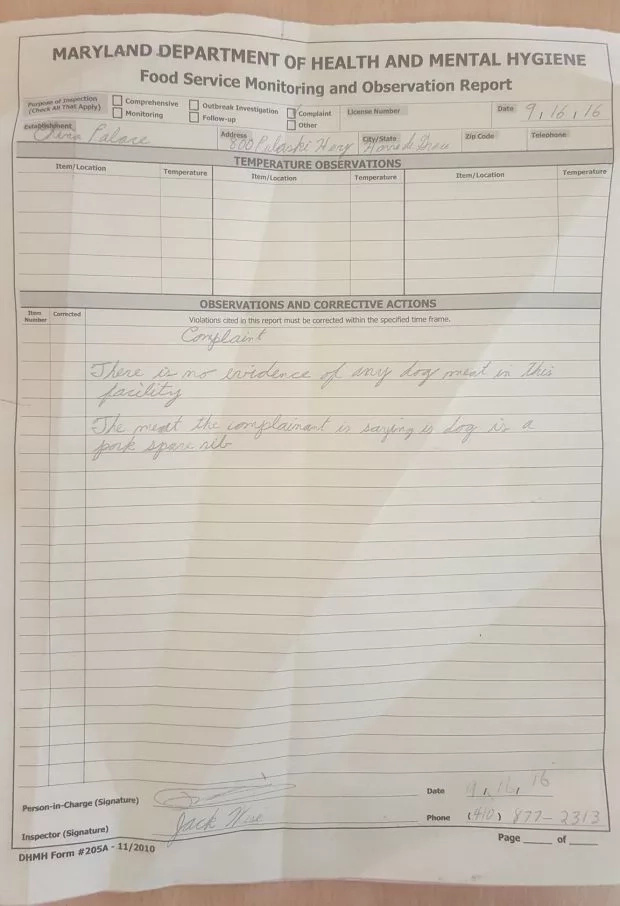 MARYLAND DEPARTMENT OF HEALTH AND MENTAL HYGIENE
Food Service Monitoring and Observation Report
Purpose of Inspection
(Check All That Apply)
Comprehensive
Monitoring
Outbreak Investigation
Follow-up
Complaint
Other
License Number
Date 9, 16, 16
Establishment
China Palace
Address
800 Pulaski Hwy
City/State
Havre de Grace
Zip Code
Telephone
TEMPERATURE OBSERVATIONS
Item/Location Temperature Item/Location Temperature Item/Location Temperature
OBSERVATIONS AND CORRECTIVE ACTIONS
Item
Number
Corrected
Violations cited in this report must be corrected within the specified time frame.
Complaint
There is no evidence of any dog meat in this
facility
The meat the complainant is saying is dog is a
pork spare rib
Person-in-Charge (Signature)
Date 9, 16, 16
Inspector (Signature) Jack
Phone (410) 877-2313
DHMH Form #205A - 11/2010
Page ____ of ____